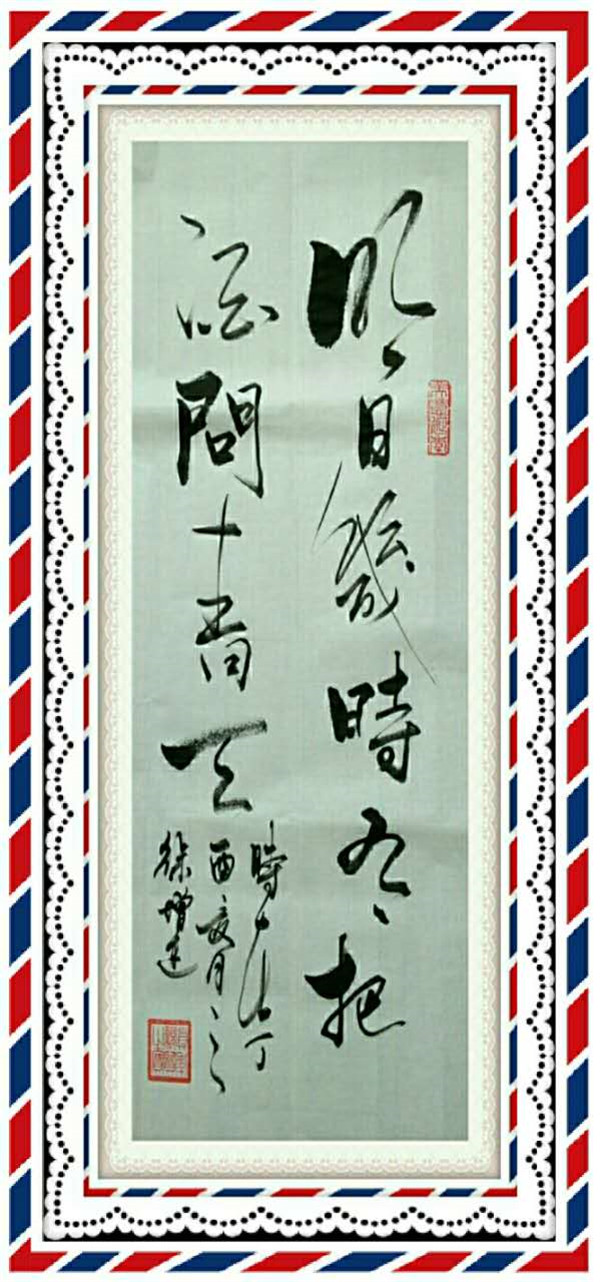 明月幾時有把
酒問青天
時丁
酉月
徐增